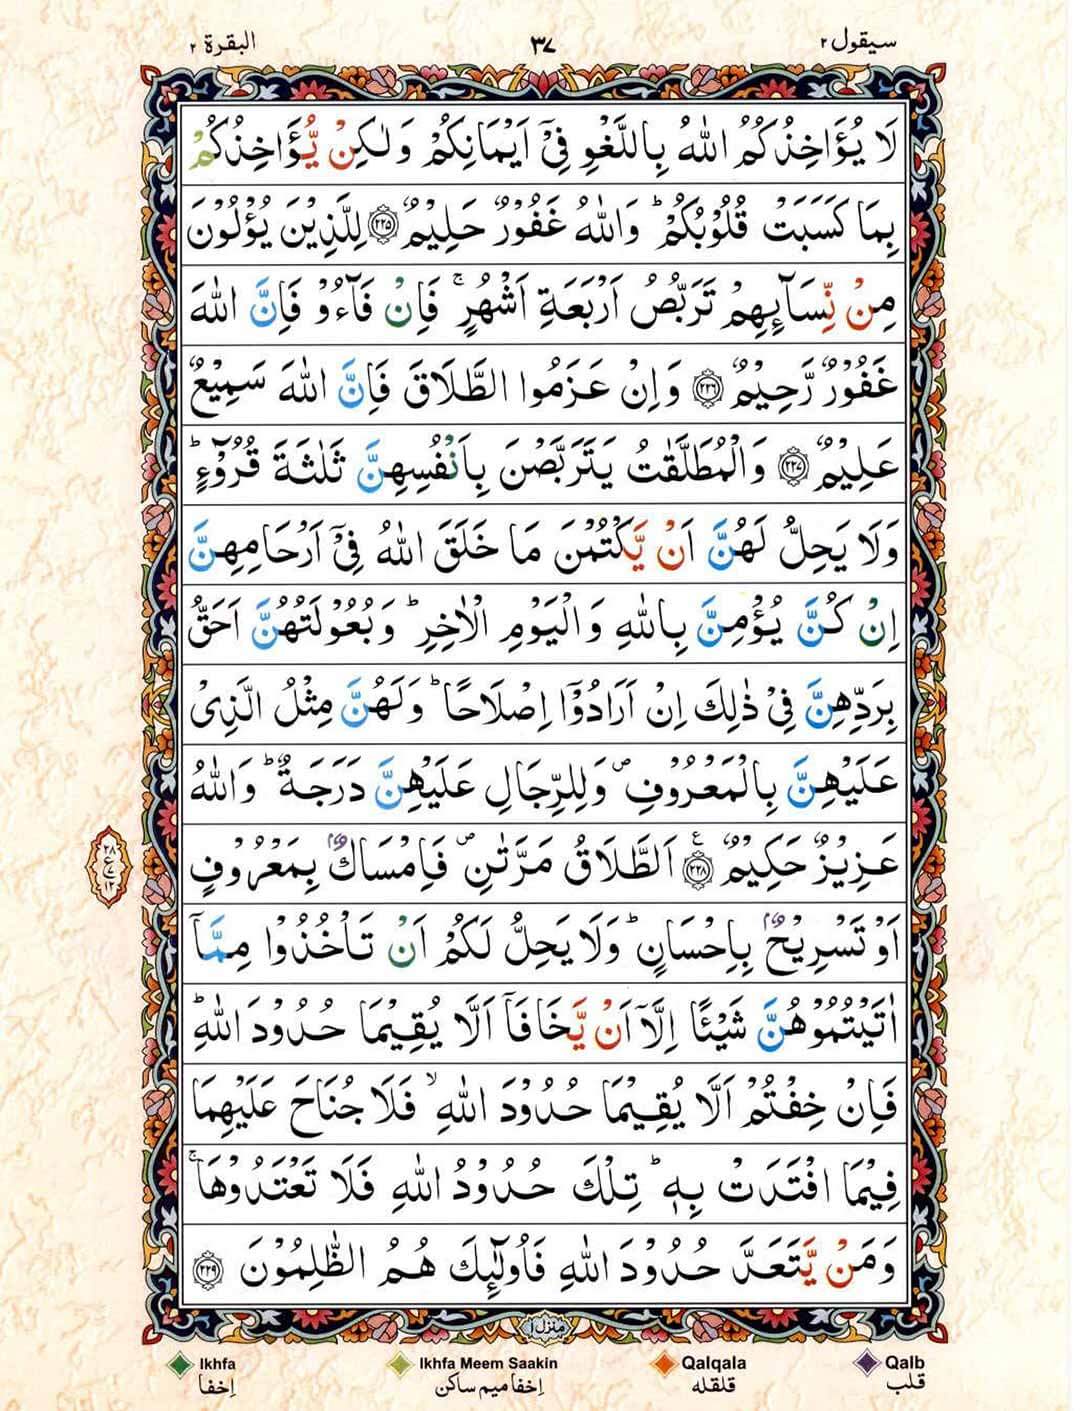 سيقول ٢ ٣٧ البقرة ٢
لَا يُؤَاخِذُكُمُ اللّٰهُ بِاللَّغْوِ فِیْۤ اَیْمَانِكُمْ وَلٰكِنْ یُّؤَاخِذُكُمْ
بِمَا كَسَبَتْ قُلُوْبُكُمْ ؕ وَاللّٰهُ غَفُوْرٌ حَلِیْمٌ ﴿۲۲۵﴾ لِلَّذِیْنَ یُؤْلُوْنَ
مِنْ نِّسَآىِٕهِمْ تَرَبُّصُ اَرْبَعَةِ اَشْهُرٍ ۚ فَاِنْ فَآءُوْ فَاِنَّ اللّٰهَ
غَفُوْرٌ رَّحِیْمٌ ﴿۲۲۶﴾ وَاِنْ عَزَمُوا الطَّلَاقَ فَاِنَّ اللّٰهَ سَمِیْعٌ
عَلِیْمٌ ﴿۲۲۷﴾ وَالْمُطَلَّقٰتُ یَتَرَبَّصْنَ بِاَنْفُسِهِنَّ ثَلٰثَةَ قُرُوْٓءٍ ؕ
وَلَا یَحِلُّ لَهُنَّ اَنْ یَّكْتُمْنَ مَا خَلَقَ اللّٰهُ فِیْۤ اَرْحَامِهِنَّ
اِنْ كُنَّ یُؤْمِنَّ بِاللّٰهِ وَالْیَوْمِ الْاٰخِرِ ؕ وَبُعُوْلَتُهُنَّ اَحَقُّ
بِرَدِّهِنَّ فِیْ ذٰلِكَ اِنْ اَرَادُوْۤا اِصْلَاحًا ؕ وَلَهُنَّ مِثْلُ الَّذِیْ
عَلَیْهِنَّ بِالْمَعْرُوْفِ ۪ وَلِلرِّجَالِ عَلَیْهِنَّ دَرَجَةٌ ؕ وَاللّٰهُ
عَزِیْزٌ حَكِیْمٌ ﴿۲۲۸﴾ ع اَلطَّلَاقُ مَرَّتٰنِ ۪ فَاِمْسَاكٌۢ بِمَعْرُوْفٍ
اَوْ تَسْرِیْحٌۢ بِاِحْسَانٍ ؕ وَلَا یَحِلُّ لَكُمْ اَنْ تَاْخُذُوْا مِمَّاۤ
اٰتَیْتُمُوْهُنَّ شَیْـًٔا اِلَّاۤ اَنْ یَّخَافَاۤ اَلَّا یُقِیْمَا حُدُوْدَ اللّٰهِ ؕ
فَاِنْ خِفْتُمْ اَلَّا یُقِیْمَا حُدُوْدَ اللّٰهِ ۙ فَلَا جُنَاحَ عَلَیْهِمَا
فِیْمَا افْتَدَتْ بِهٖ ؕ تِلْكَ حُدُوْدُ اللّٰهِ فَلَا تَعْتَدُوْهَا ۚ
وَمَنْ یَّتَعَدَّ حُدُوْدَ اللّٰهِ فَاُولٰٓىِٕكَ هُمُ الظّٰلِمُوْنَ ﴿۲۲۹﴾
۲۸
ع
۱۲
منزل ۱
Ikhfa Ikhfa Meem Saakin Qalqala Qalb
إخفا إخفا ميم ساكن قلقله قلب